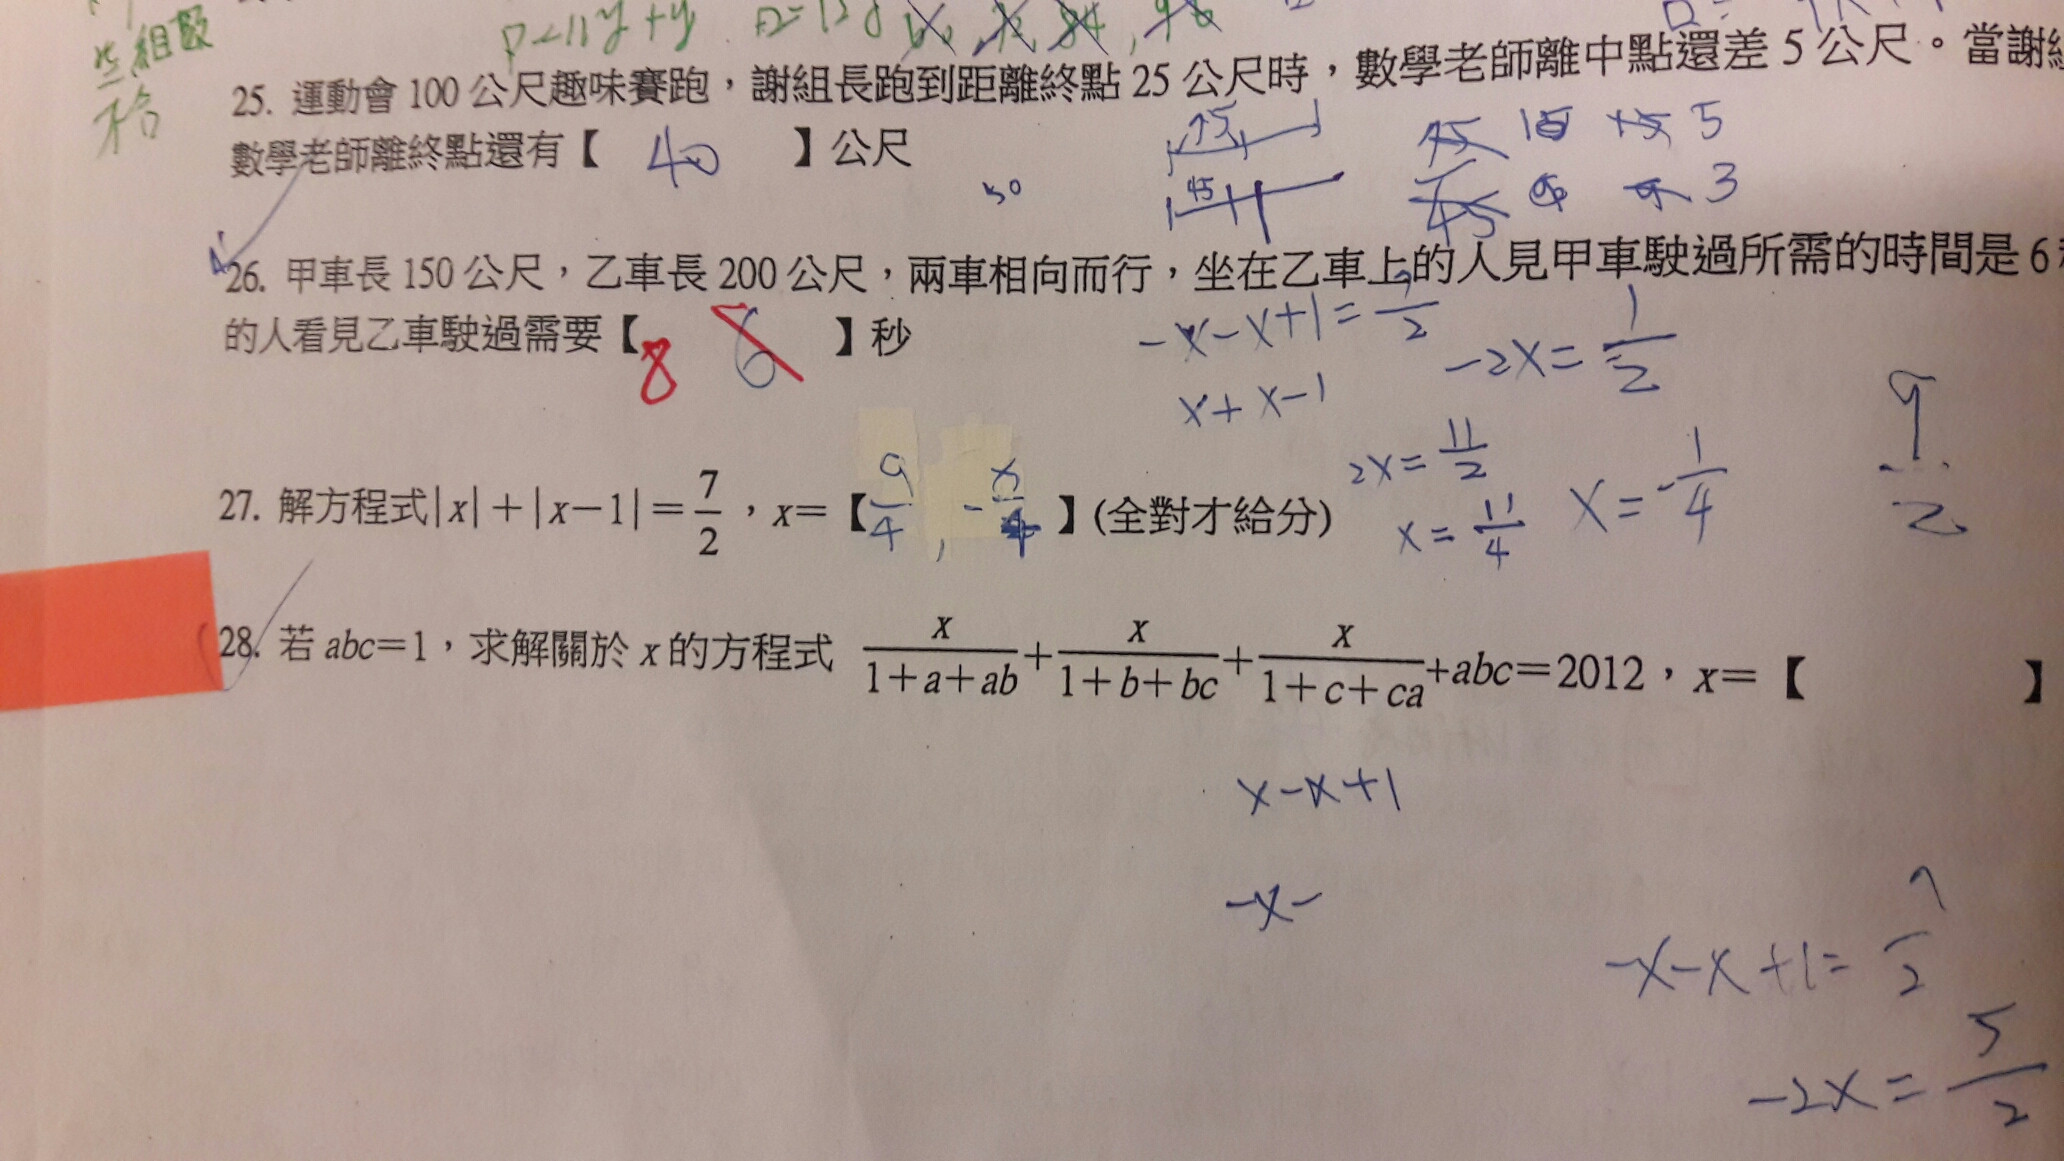 些組設
P=11y+y
不合
25. 運動會 100 公尺趣味賽跑，謝組長跑到距離終點 25 公尺時，數學老師離中點還差 5 公尺。當謝
數學老師離終點還有【 40 】公尺
75
45
50
5
3
26. 甲車長 150 公尺，乙車長 200 公尺，兩車相向而行，坐在乙車上的人見甲車駛過所需的時間是 6
的人看見乙車駛過需要【8 6 】秒
-x-x+1=7/2
-2x=1/2
x+x-1
2x=11/2
x=11/4
x=-1/4
9/2
27. 解方程式|x|+|x-1|=7/2，x=【9/4 , -5/4】(全對才給分)
28. 若 abc=1，求解關於 x 的方程式 x/(1+a+ab)+x/(1+b+bc)+x/(1+c+ca)+abc=2012，x=【 】
x-x+1
-x-
-x-x+1=7/2
-2x=5/2